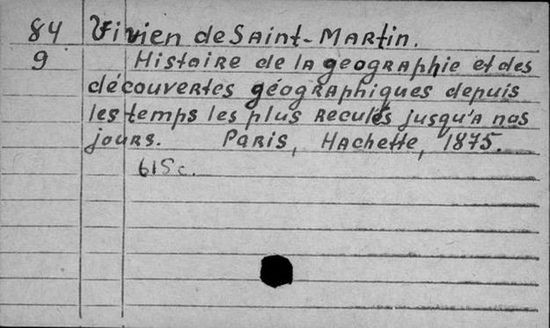 84 Vivien de Saint-Martin.
9 Histoire de la geographie et des
découvertes géographiques depuis
les temps les plus reculés jusqu'a nos
jours. Paris, Hachette, 1875.
615c.